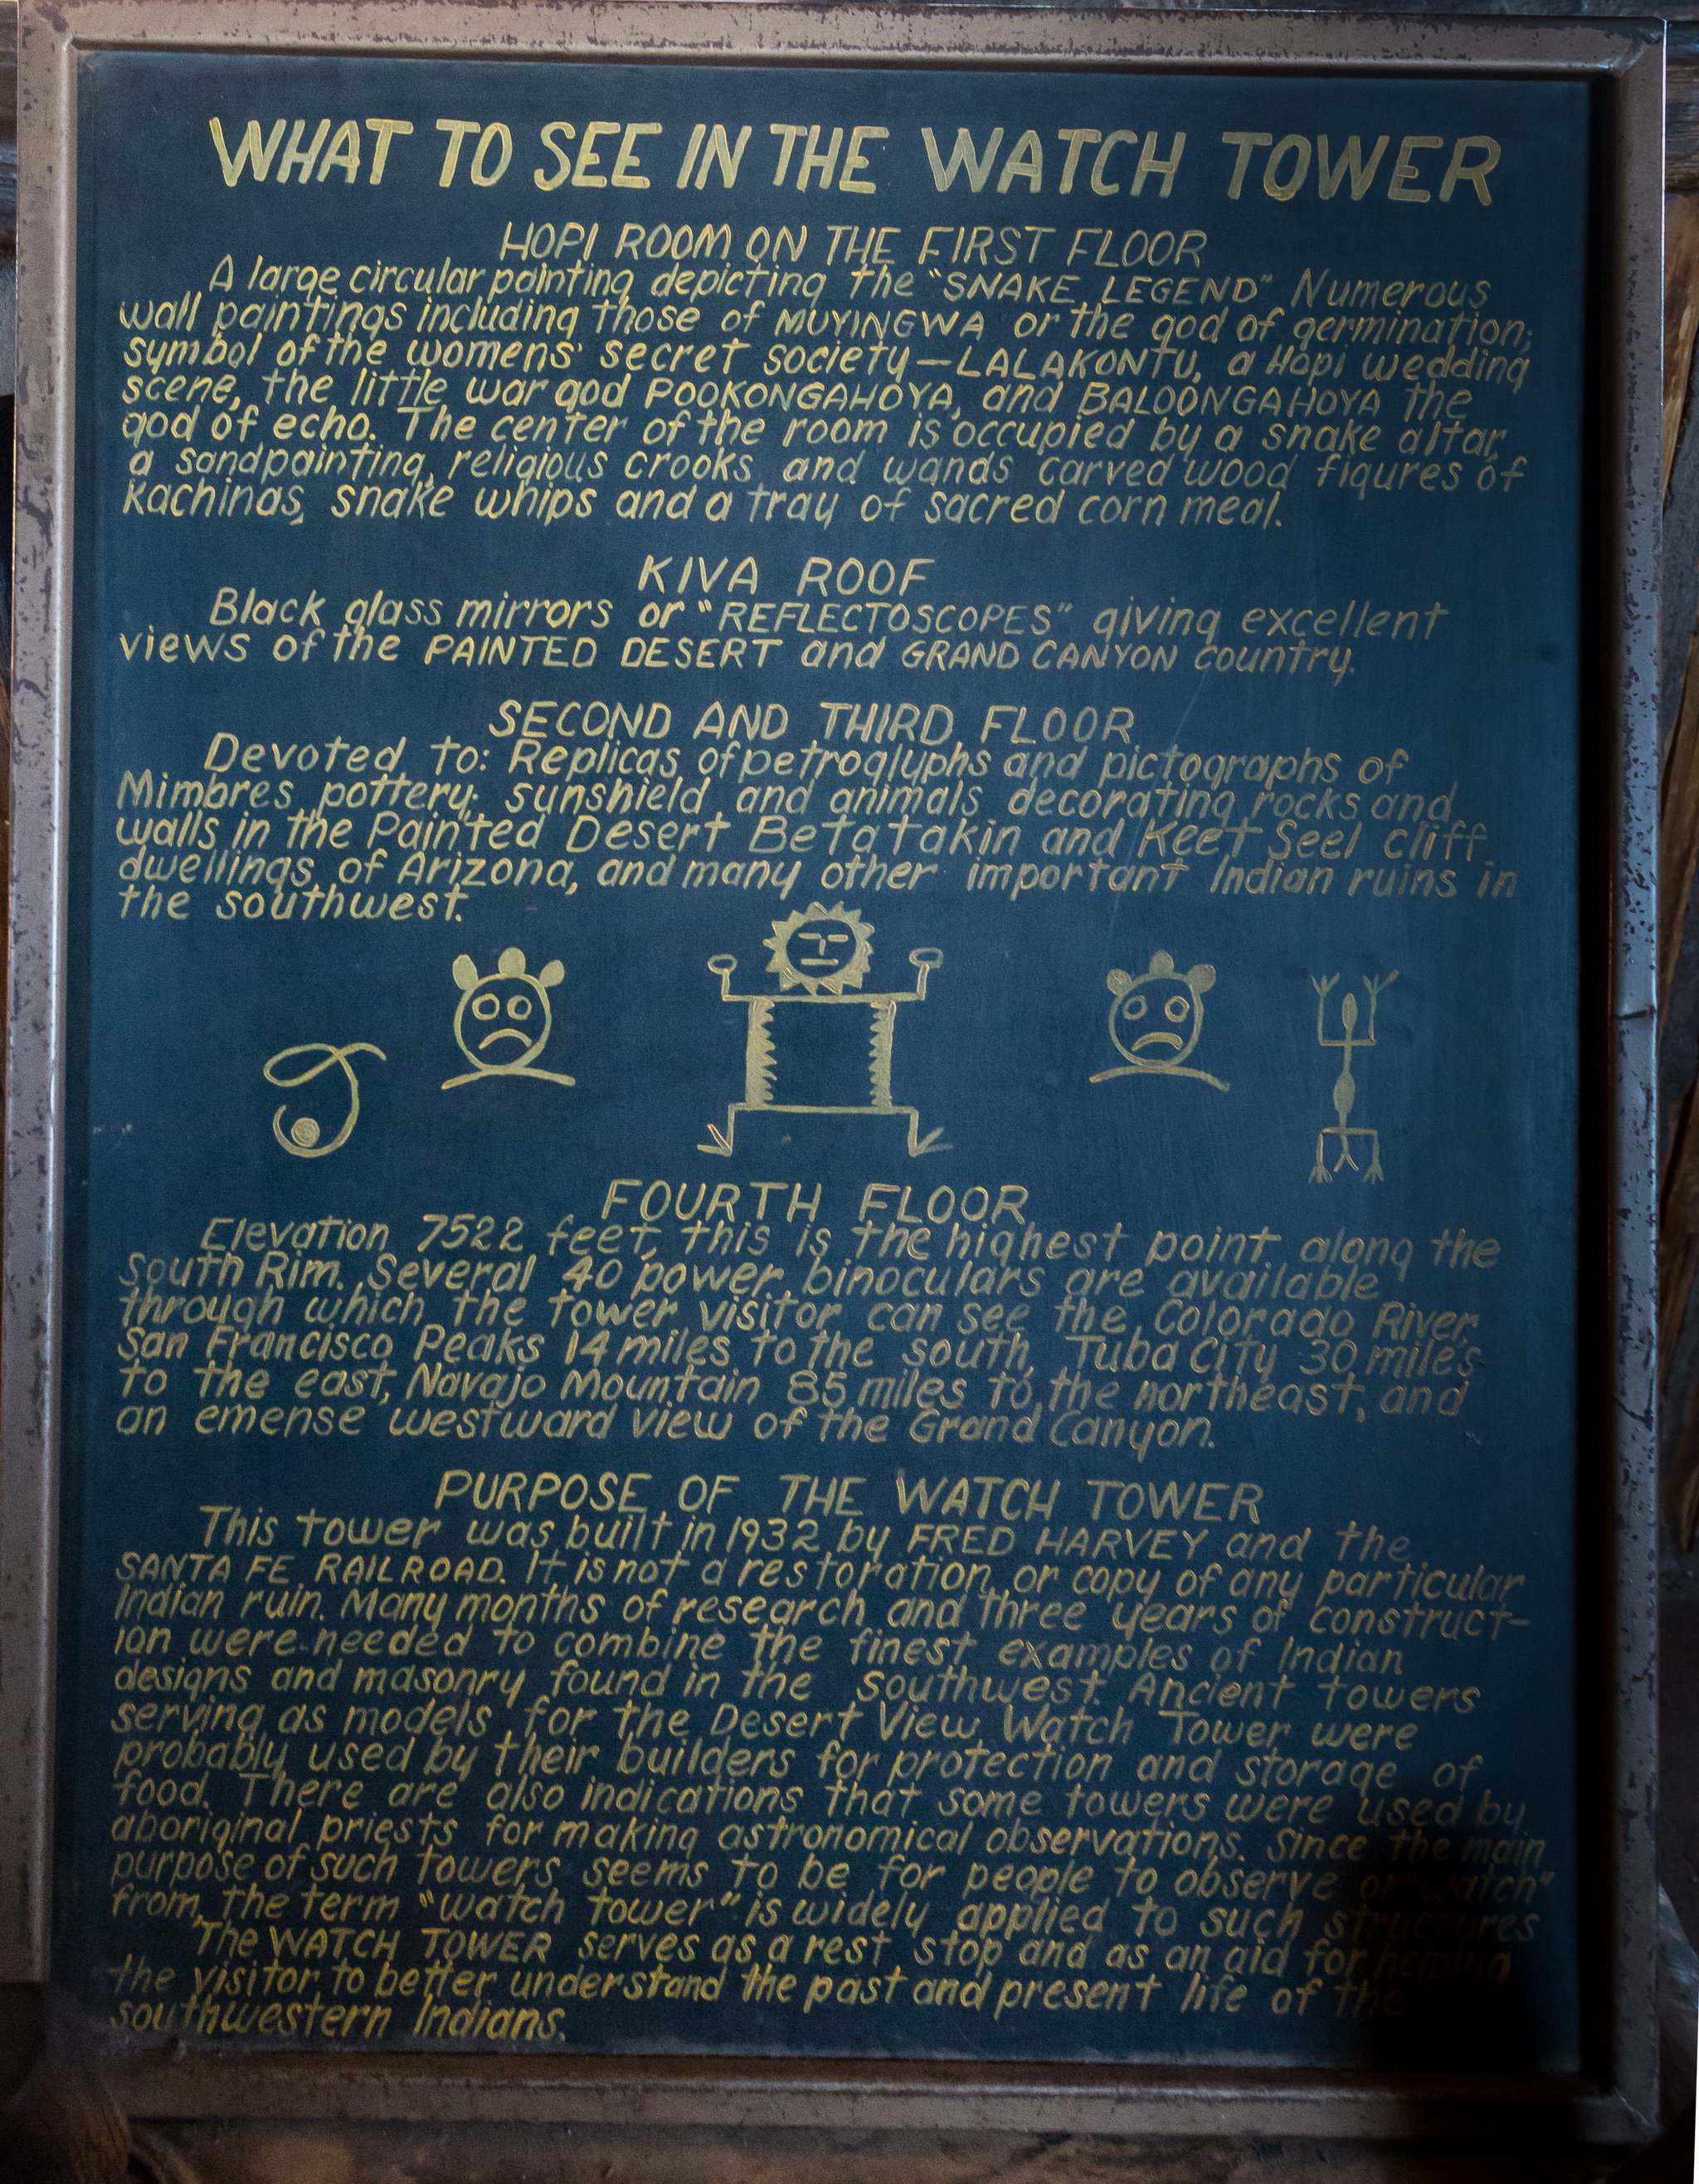 WHAT TO SEE IN THE WATCH TOWER
HOPI ROOM ON THE FIRST FLOOR
A large circular painting depicting the "SNAKE LEGEND" Numerous
wall paintings including those of MUYINGWA or the god of germination;
symbol of the womens' secret society—LALAKONTU, a Hopi wedding
scene, the little war god POOKONGAHOYA, and BALOONGAHOYA the
god of echo. The center of the room is occupied by a snake altar,
a sandpainting, religious crooks and wands carved wood figures of
kachinas, snake whips and a tray of sacred corn meal.
KIVA ROOF
Black glass mirrors or "REFLECTOSCOPES" giving excellent
views of the PAINTED DESERT and GRAND CANYON country.
SECOND AND THIRD FLOOR
Devoted to: Replicas of petroglyphs and pictographs of
Mimbres pottery; sunshield and animals decorating rocks and
walls in the Painted Desert Betatakin and Keet Seel cliff
dwellings of Arizona, and many other important Indian ruins in
the southwest.
FOURTH FLOOR
Elevation 7522 feet, this is the highest point along the
South Rim. Several 40 power binoculars are available
through which the tower visitor can see the Colorado River,
San Francisco Peaks 14 miles to the south, Tuba City 30 miles
to the east, Navajo Mountain 85 miles to the northeast, and
an emense westward view of the Grand Canyon.
PURPOSE OF THE WATCH TOWER
This tower was built in 1932 by FRED HARVEY and the
SANTA FE RAILROAD. It is not a restoration or copy of any particular
Indian ruin. Many months of research and three years of construct-
ion were needed to combine the finest examples of Indian
designs and masonry found in the Southwest. Ancient towers
serving as models for the Desert View Watch Tower were
probably used by their builders for protection and storage of
food. There are also indications that some towers were used by
aboriginal priests for making astronomical observations. Since the main
purpose of such towers seems to be for people to observe or "watch"
from, the term "watch tower" is widely applied to such structures
The WATCH TOWER serves as a rest stop and as an aid for helping
the visitor to better understand the past and present life of the
southwestern Indians.